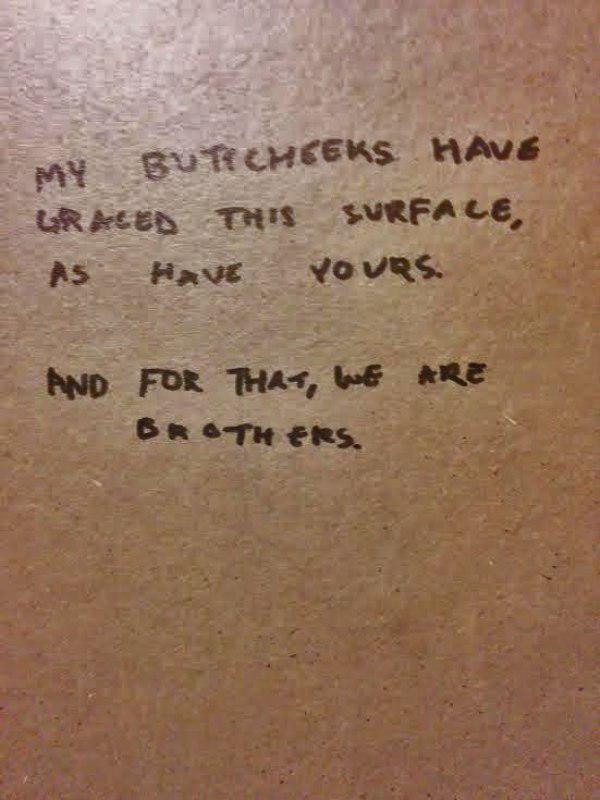 MY BUTTCHEEKS HAVE
GRACED THIS SURFACE,
AS HAVE YOURS.
AND FOR THAT, WE ARE
BROTHERS.